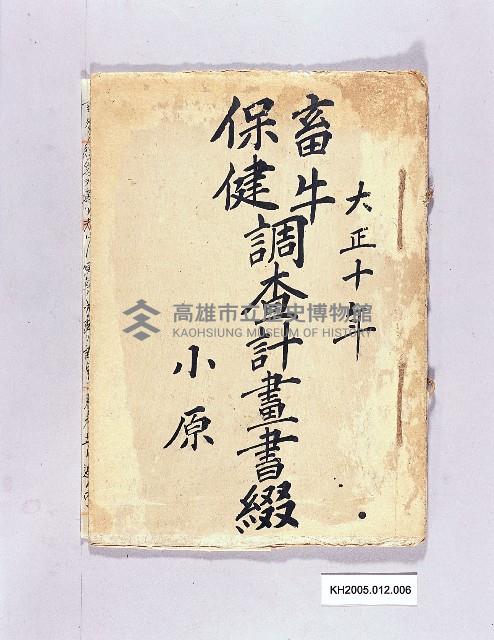 大正十年
畜牛
保健
調査計畫書綴
小原
高雄市立歷史博物館
KAOHSIUNG MUSEUM OF HISTORY
KH2005.012.006